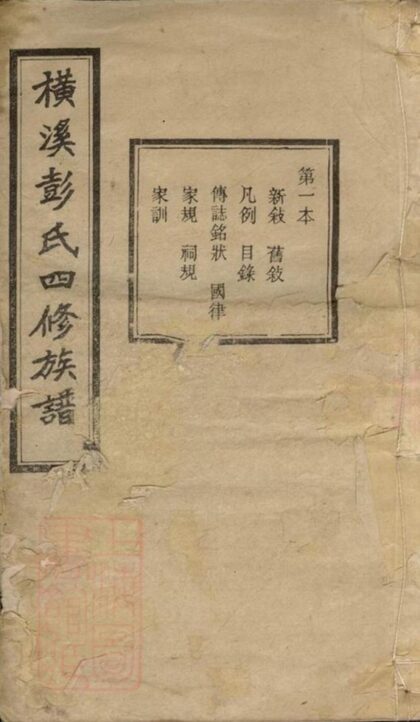 橫溪彭氏四修族譜
第一本
新敘 舊敘
凡例 目錄
傳誌銘狀 國律
家規 祠規
家訓